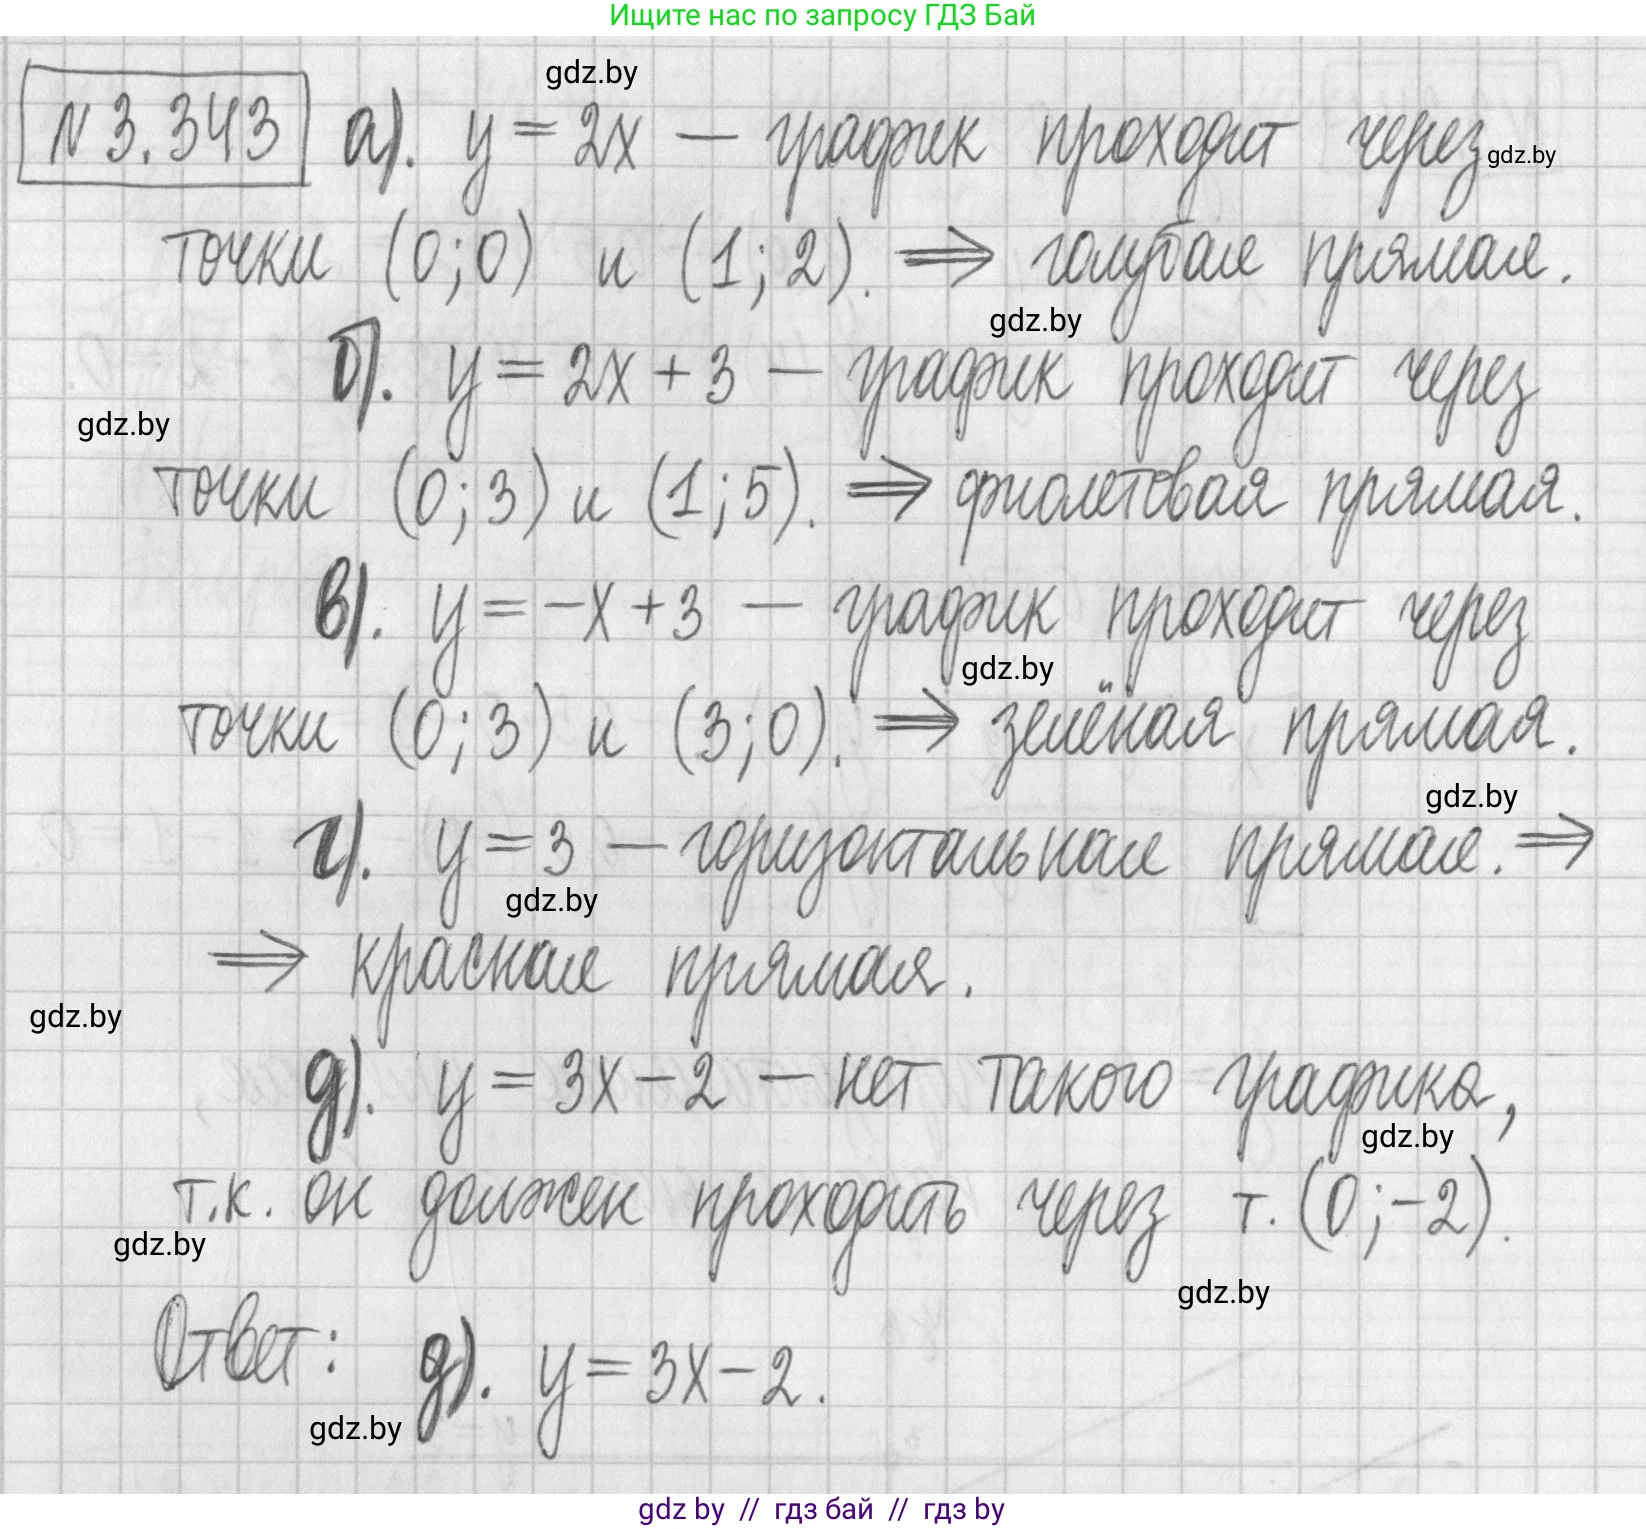 Ищите нас по запросу ГДЗ Бай
gdz.by
№ 3.343 а). y = 2x — график проходит через
gdz.by
точки (0; 0) и (1; 2). ⇒ голубая прямая.
gdz.by
б). y = 2x + 3 — график проходит через
gdz.by
точки (0; 3) и (1; 5). ⇒ фиолетовая прямая.
в). y = -x + 3 — график проходит через
gdz.by
точки (0; 3) и (3; 0). ⇒ зелёная прямая.
gdz.by
г). y = 3 — горизонтальная прямая. ⇒
gdz.by
⇒ красная прямая.
gdz.by
д). y = 3x - 2 — нет такого графика,
gdz.by
т.к. он должен проходить через т. (0; -2).
gdz.by
gdz.by
Ответ: д). y = 3x - 2.
gdz.by
gdz by // гдз бай // гдз by